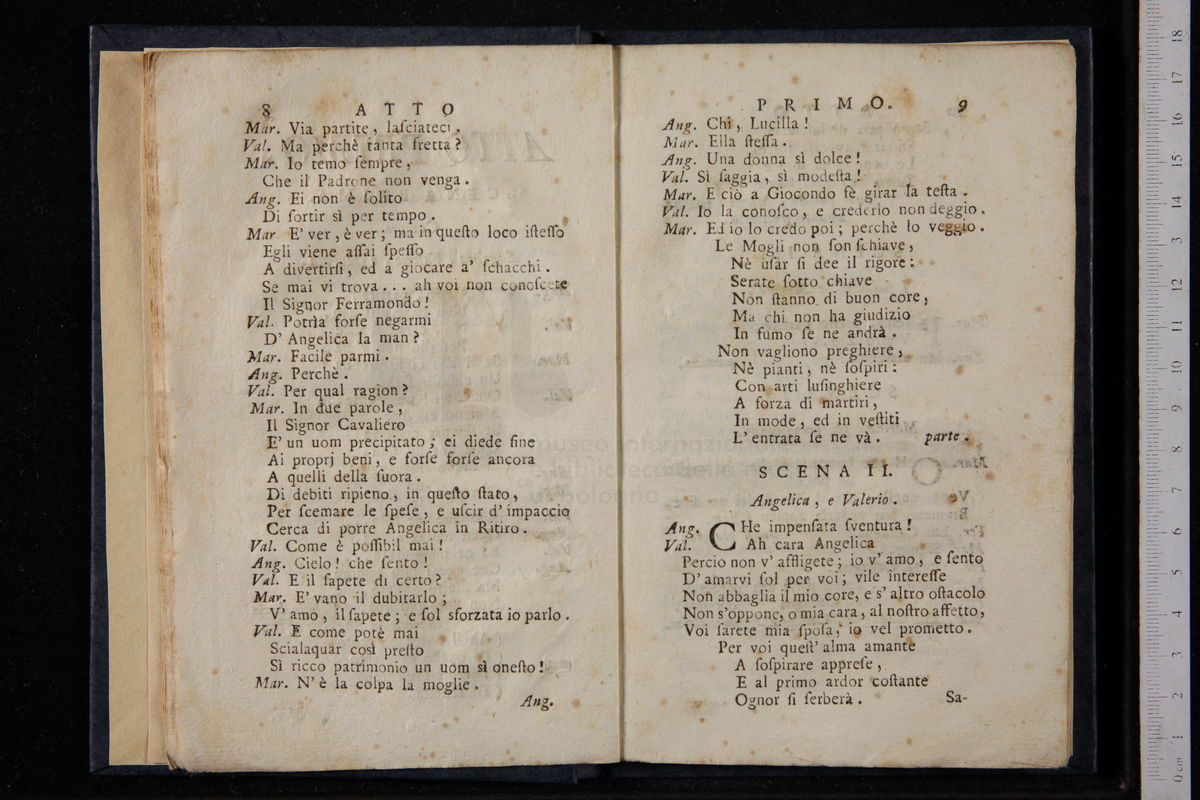 8 ATTO
Mar. Via partite, laſciateci.
Val. Ma perchè tanta fretta?
Mar. Io temo ſempre,
Che il Padrone non venga.
Ang. Ei non è ſolito
Di ſortir sì per tempo.
Mar. E' ver, è ver; ma in queſto loco iſteſſo
Egli viene aſſai ſpeſſo
A divertirſi, ed a giocare a' ſchacchi.
Se mai vi trova... ah voi non conoſcete
Il Signor Ferramondo!
Val. Potrìa forſe negarmi
D' Angelica la man?
Mar. Facile parmi.
Ang. Perchè.
Val. Per qual ragion?
Mar. In due parole,
Il Signor Cavaliero
E' un uom precipitato; ei diede fine
Ai proprj beni, e forſe forſe ancora
A quelli della ſuora.
Di debiti ripieno, in queſto ſtato,
Per ſcemare le ſpeſe, e uſcir d' impaccio
Cerca di porre Angelica in Ritiro.
Val. Come è poſſibil mai!
Ang. Cielo! che ſento!
Val. E il ſapete di certo?
Mar. E' vano il dubitarlo;
V' amo, il ſapete; e ſol sforzata io parlo.
Val. E come potè mai
Scialaquar così preſto
Sì ricco patrimonio un uom sì oneſto!
Mar. N' è la colpa la moglie.
Ang.
PRIMO. 9
Ang. Chi, Lucilla!
Mar. Ella ſteſſa.
Ang. Una donna sì dolce!
Val. Sì ſaggia, sì modeſta!
Mar. E ciò a Giocondo fè girar la teſta.
Val. Io la conoſco, e crederlo non deggio.
Mar. Ed io lo credo poi; perchè lo veggio.
Le Mogli non ſon ſchiave,
Nè uſar ſi dee il rigore:
Serate ſotto chiave
Non ſtanno di buon core;
Ma chi non ha giudizio
In fumo ſe ne andrà.
Non vagliono preghiere,
Nè pianti, nè ſoſpiri:
Con arti luſinghiere
A forza di martìri,
In mode, ed in veſtiti
L' entrata ſe ne và. parte.
SCENA II.
Angelica, e Valerio.
Ang. CHe impenſata ſventura!
Val. Ah cara Angelica
Percio non v' affligete; io v' amo, e ſento
D' amarvi ſol per voi; vile intereſſe
Non abbaglia il mio core, e s' altro oſtacolo
Non s'oppone, o mia cara, al noſtro affetto,
Voi ſarete mia ſpoſa, io vel prometto.
Per voi queſt' alma amante
A ſoſpirare appreſe,
E al primo ardor coſtante
Ognor ſi ſerberà. Sa-